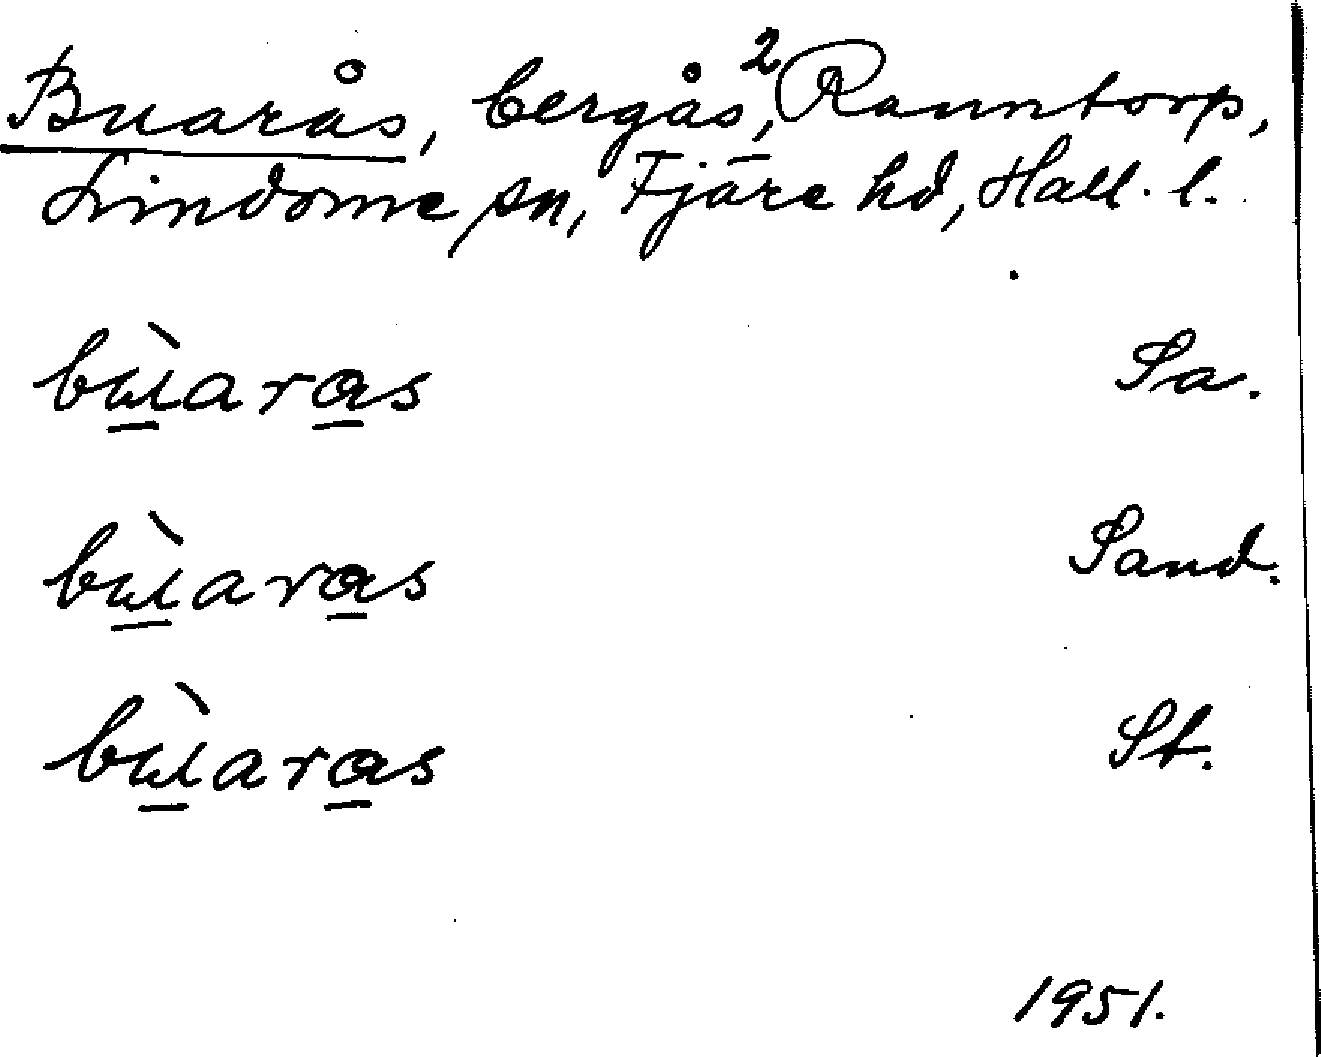 Buarås, bergås,² Ranntorp,
Lindome sn, Fjäre hd, Hall. l.
bùaras Sa.
bùaras Sand.
bùaras St.
1951.